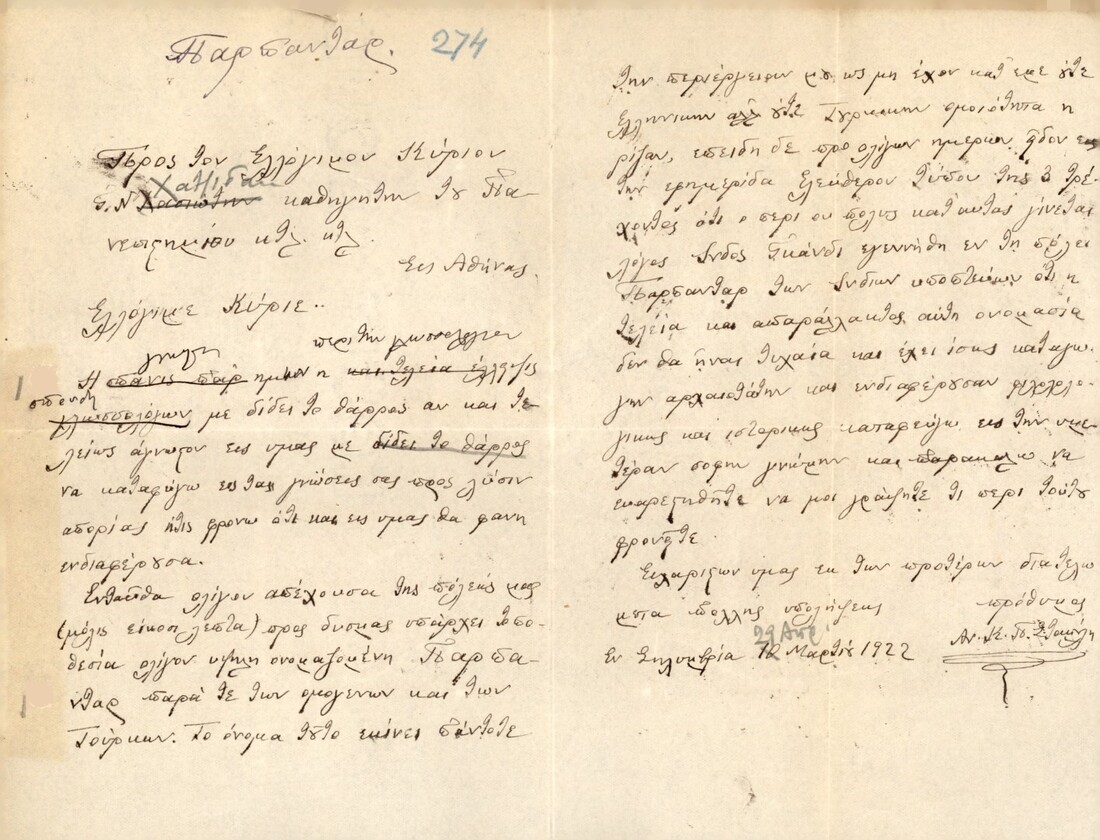 Παρπανταρ. 274
Προς τον Ελλόγιμον Κύριον
Χατζιδάκι
Γ. Ν Χασιώτην καθηγητην του Πα-
νεπιστημίου κτλ. κτλ.
Εις Αθήνας.
Ελλόγιμε Κύριε..
γνωστη περι την γλωσσολογιαν
Η σπανις παρ ημιν η και τελεία έλλειψις
σπουδη
γλωσσολόγων με δίδει το θάρρος αν και τε-
λείως άγνωστον εις υμας με δίδει το θάρρος
να καταφύγω εις τας γνώσεις σας προς λύσιν
απορίας ήτις φρονω ότι και εις υμας θα φανη
ενδιαφέρουσα.
Ενταύθα ολίγον απέχουσα της πόλεώς μας
(μόλις είκοσι λεπτα) προς δυσμας υπάρχει τοπο-
θεσία ολίγον υψηλη ονομαζομένη Παρπα-
νταρ παρά τε των ομογενων και των
Τούρκων. Το όνομα τουτο εκίνει πάντοτε
την περιέργειαν μου ως μη έχον κατ εμε ούτε
Ελληνικην αλλ ούτε Τουρκικην ομοιότητα η
ρίζαν, επειδη δε προ ολίγων ημερων ειδον εις
την εφημερίδα Ελεύθερον Τύπον της 3 τρέ-
χοντος ότι ο περι ου πολυς κατ αυτας γίνεται
λόγος Ινδος Γκάνδι εγεννήθη εν τη πόλει
Παρπανταρ των Ινδιων υποπτεύων ότι η
τελεία και απαράλλακτος αύτη ονομασία
δεν θα ήναι τυχαία και έχει ίσως καταγω-
γην αρχαιοτάτην και ενδιαφέρουσαν φιλολο-
γικως και ιστορικως καταφεύγω εις την υμε-
τέραν σοφην γνώμην και παρακαλω να
ευαρεστηθητε να μοι γράψητε τι περι τούτου
φρονητε.
Ευχαριστων υμας εκ των προτέρων διατελω
μετα πολλης υπολήψεως πρόθυμος
29 Απρ.
Εν Σηλυβρία 12 Μαρτίου 1922 Αν. Κ. Π. Σταμούλη